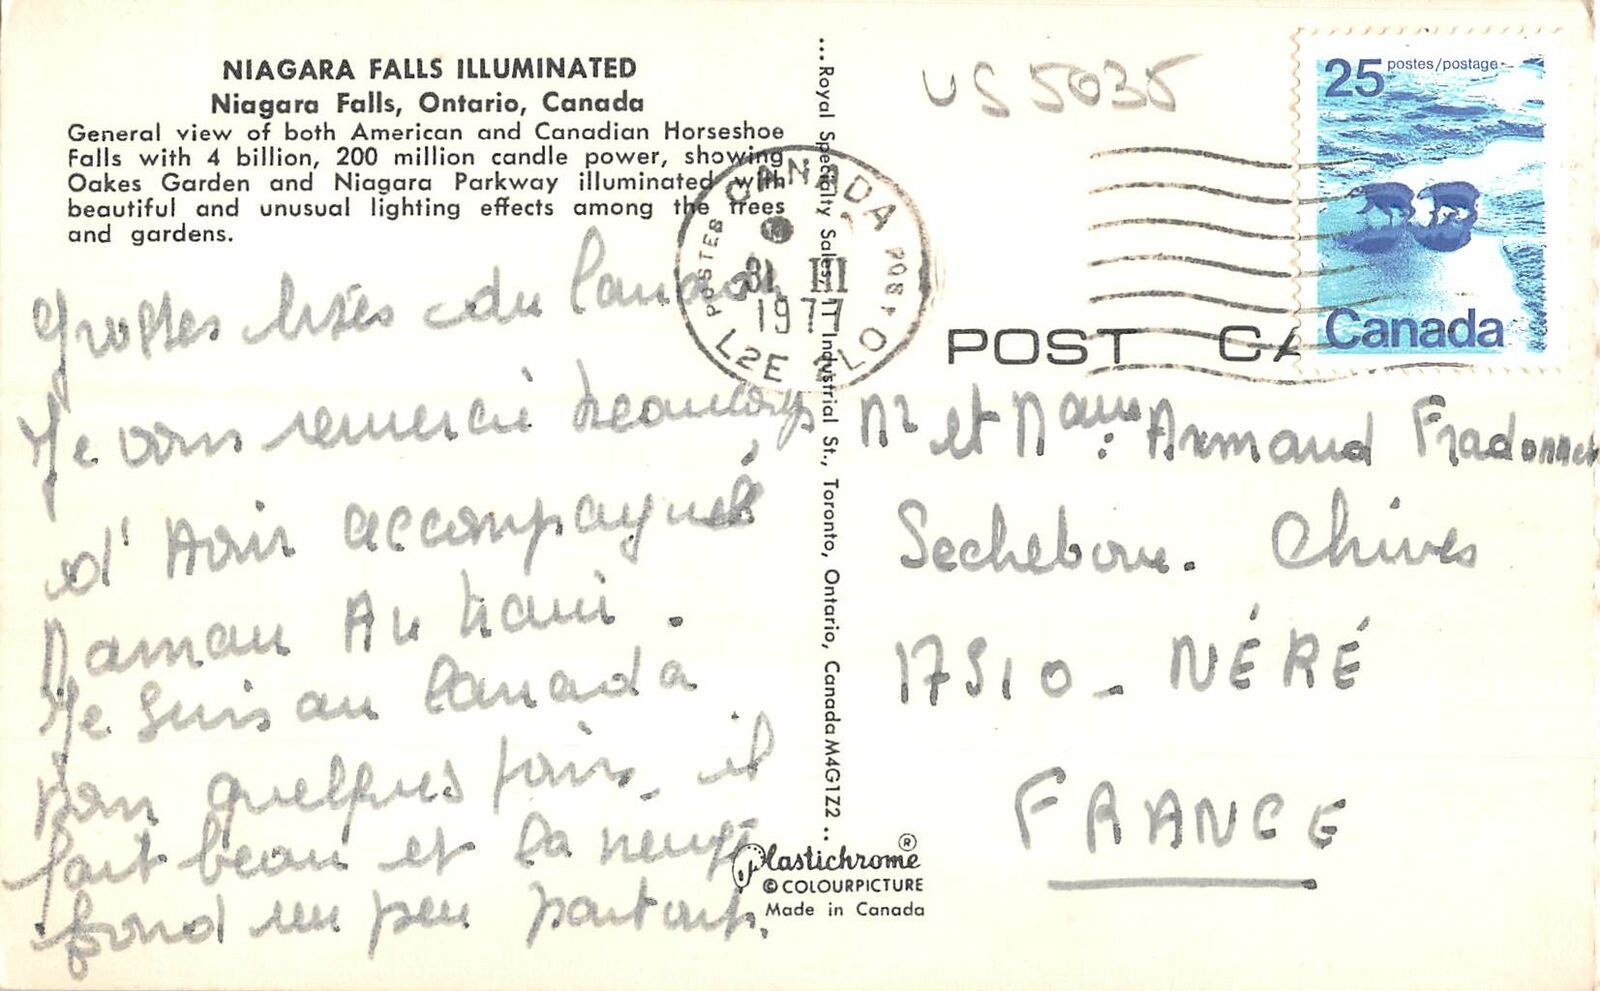 NIAGARA FALLS ILLUMINATED
Niagara Falls, Ontario, Canada
General view of both American and Canadian Horseshoe
Falls with 4 billion, 200 million candle power, showing
Oakes Garden and Niagara Parkway illuminated with
beautiful and unusual lighting effects among the trees
and gardens.
Grosses bises du Canada.
Je vous remercie beaucoup
d'Avoir accompagné
Maman Au train.
Je suis au Canada
pour quelques jours, il
fait beau et la neige
fond un peu partout.
... Royal Specialty Sales, 11 Industrial St., Toronto, Ontario, Canada M4G1Z2 ..
Plastichrome ®
© COLOURPICTURE
Made in Canada
US 5035
CANADA
POSTES POST
31 III
1977
L2E LO
25 postes/postage
Canada
POST CA
Mr et Mame: Armand Fradonnet
Sechebour. Chives
17510 - NÉRÉ
FRANCE